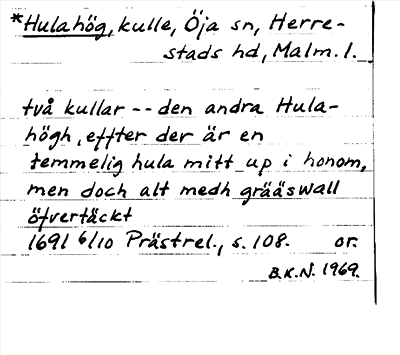 *Hulahög, kulle, Öja sn, Herre-
stads hd, Malm. l.
två kullar -- den andra Hula-
högh, effter der är en
temmelig hula mitt up i honom,
men doch alt medh grääswall
öfvertäckt
1691 6/10 Prästrel., s. 108. or.
B.K.N. 1969.